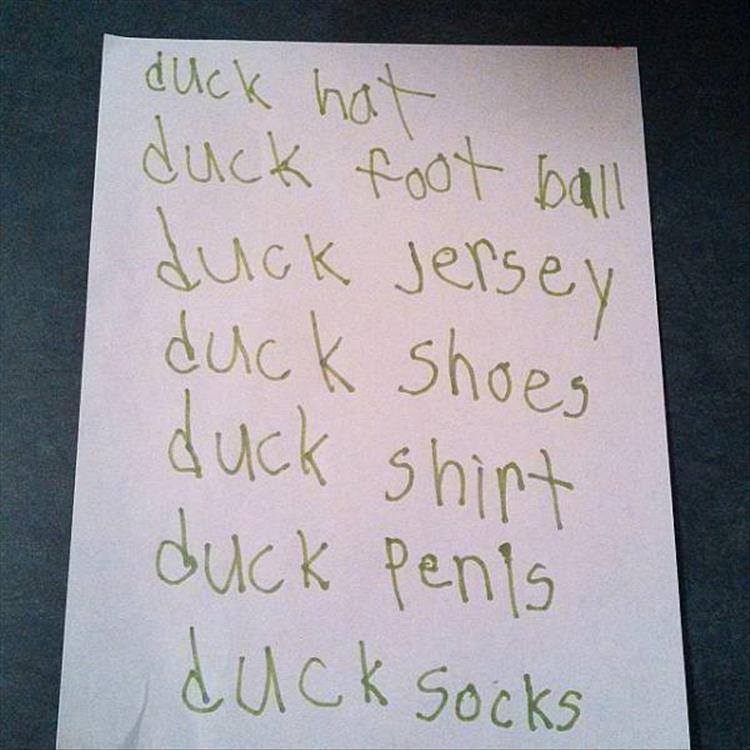 duck hat
duck foot ball
duck jersey
duck shoes
duck shirt
duck penis
duck socks